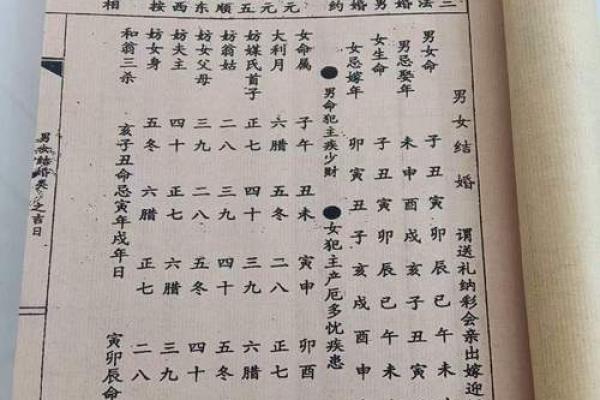 三
法
婚
男
婚
约
元
元
五
顺
东
西
按
相
男女结婚 谓送礼纳彩会亲出嫁迎
男女命 子丑寅卯辰巳午未
男忌娶年 未申酉戌亥子丑寅
女生命 子丑寅卯辰巳午未
女忌嫁年 卯寅丑子亥戌酉申
●男命犯主疾少财 ●女犯主产厄多忧疾患
女命属 子午 丑未 寅申 卯酉
大利月 六腊 五冬 二八 正七
妨媒氏首子 正七 四十 三九 六腊
妨翁姑 二八 三九 四十 五冬
妨女父母 三九 二八 五冬 四十
妨夫主 四十 正七 六腊 三九
妨女身 五冬 六腊 正七 二八
和翁三杀 亥子丑命忌寅年戌年日 寅卯辰命
男女结婚类之吉日